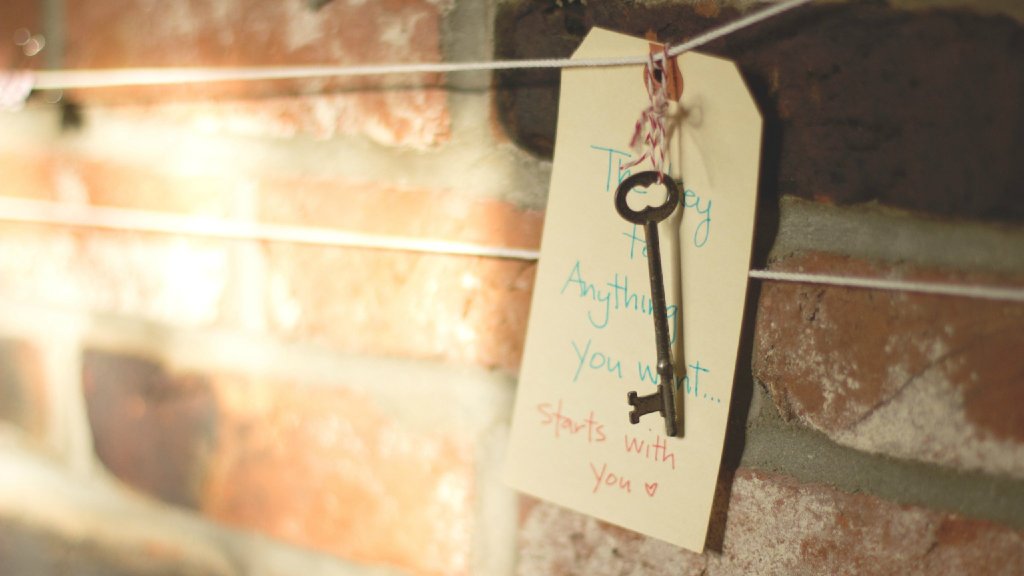 The key
to
Anything
you want...
starts with
you ♥